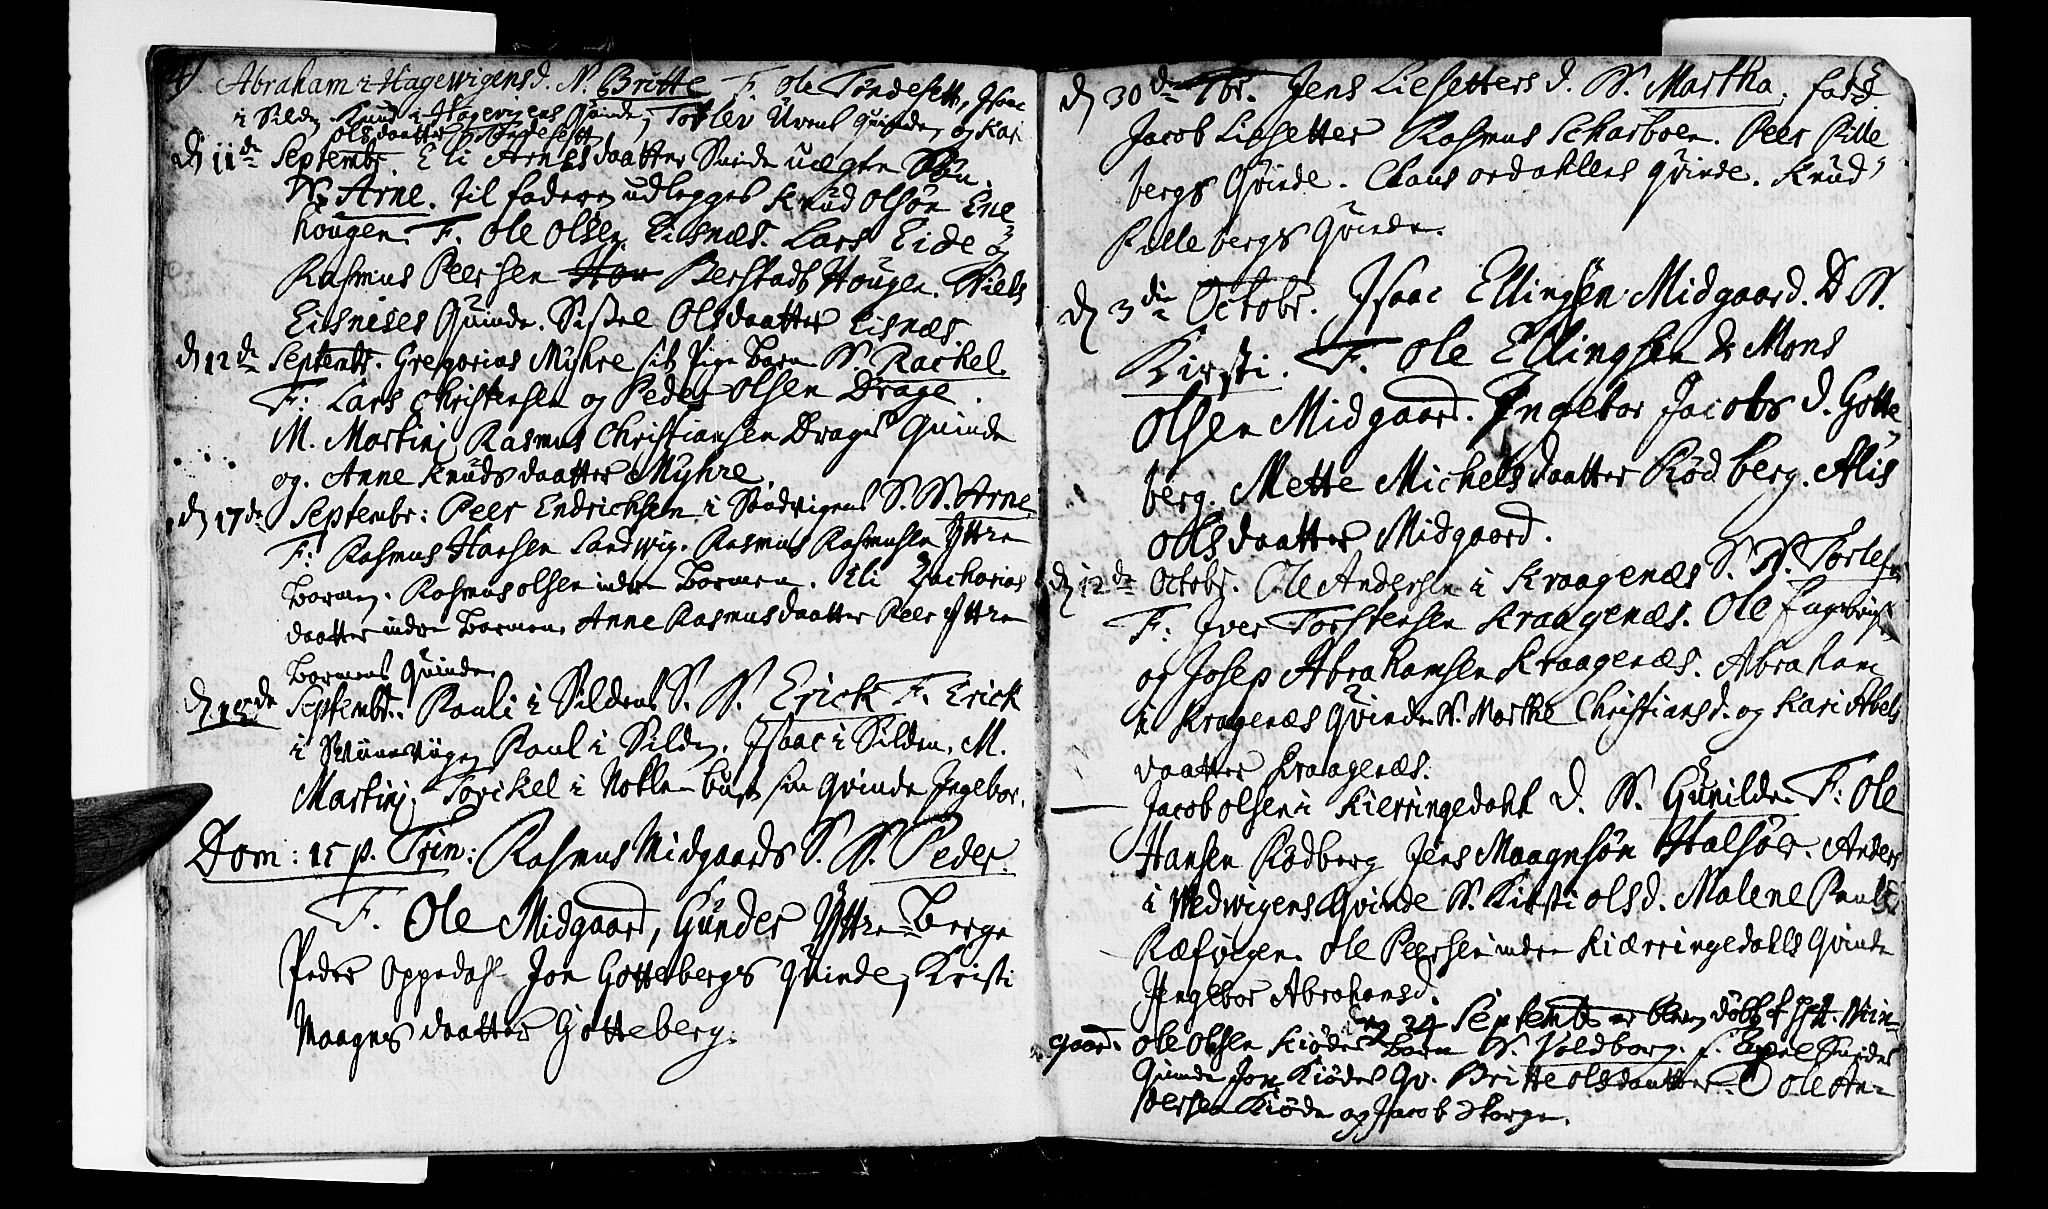 4/ Abraham i Hagewigens d. N. Britte F. Ole Tondesett, Isaac
i Silden Knud i Hagevigens Qvinde, Torlev Urens Quinde, og Kari
olsdaatter Tondesett
d 11de Septembr. Eli Arnesdaatter Svinde uægte Søn.
N. Arne. til faderen udlegges Knud Olsøn Ene
hougen. F. Ole Olsen Eisnæs. Lars Eide og
Rasmus Peersen Hou Berstads Hougen. Niels
Eisnises Quinde. Sissel Olsdaatter Eisnæs.
d 12de Septembr. Gregorius Myhre sit Pige Barn N. Rachel
F: Lars Christensen og Peder Olsen Drage.
M. Martinj Rasmus Christiansen Drages Quinde
og. Anne Knudsdaatter Myhre.
d 17de Septembr: Peer Endrichsen i Sandvigens S. N. Arne
F: Rasmus Hansen Landwig. Rasmus Rasmusen Yttre
Barmen. Rasmus olsen indre Barmen. Eli Zacharias
daatter indre Barmen. Anne Rasmusdaatter Peer Yttre
Barmens Quinde
d 18de Septembr. Pauli i Sildens S. N. Erick F. Erick
i Paul i Silden. Isaac i Silden. M.
Martinj. Torckel i Nottle-bust sin Qvinde Ingebor.
Dom: 15 p. Trin: Rasmus Midgaards S. N. Peder.
F. Ole Midgaard, Gunder Yttre-Berge
Peder Oppedahl Jon Gottebergs Quinde, Kristi
Maagnsdaatter Gotteberg.
5
d 30de 7br. Jens Liesetters d. N. Martha. fad:
Jacob Liesetter Rasmus Scharboen. Peer Pille
bergs Qvinde. Claus ordahlens qvinde. Knud
Pillebergs Qvinde.
d 3die Octobr. Isaac Ellingsen Midgaard. D N.
Kirsti. F. Ole Ellingsen & Mons
Olsen Midgaard. Ingebor Jacobs d. Gotte
berg. Mette Michelsdaatter Rødberg. Alis
Olsdaatter Midgaard.
d 12de Octobr. Ole Andersen i Kraagenæs S. N. Torle
F: Iver Torstensen Kraagenæs. Ole Engebrigt
og Josep Abrahamsen Kraagenæs. Abraham
i Kragenæs Qvinde N. Marthe Christians d. og Kari Abels
daatter Kraagenæs.
Jacob olsen i Kierringedahl D. N. Gunilde F: Ole
Hansen Rødberg Jens Maagnsøn Halsør. Anders
i Wedwigens Qvinde N. Kirsti ols d. Malene Pauls
Ræfvigen. Ole Peersen indre Kiærringedahls Qvinde
Ingebor Abrahams d.
24 Septembr er bleven døbt
gaard. Ole Olsen Kiødes Barn N. Voldborg. F.
Quinde Jon Kiødes Qv. Britte olsdaatter. Ole An-
dersen Kiøde og Jacob Skorge.